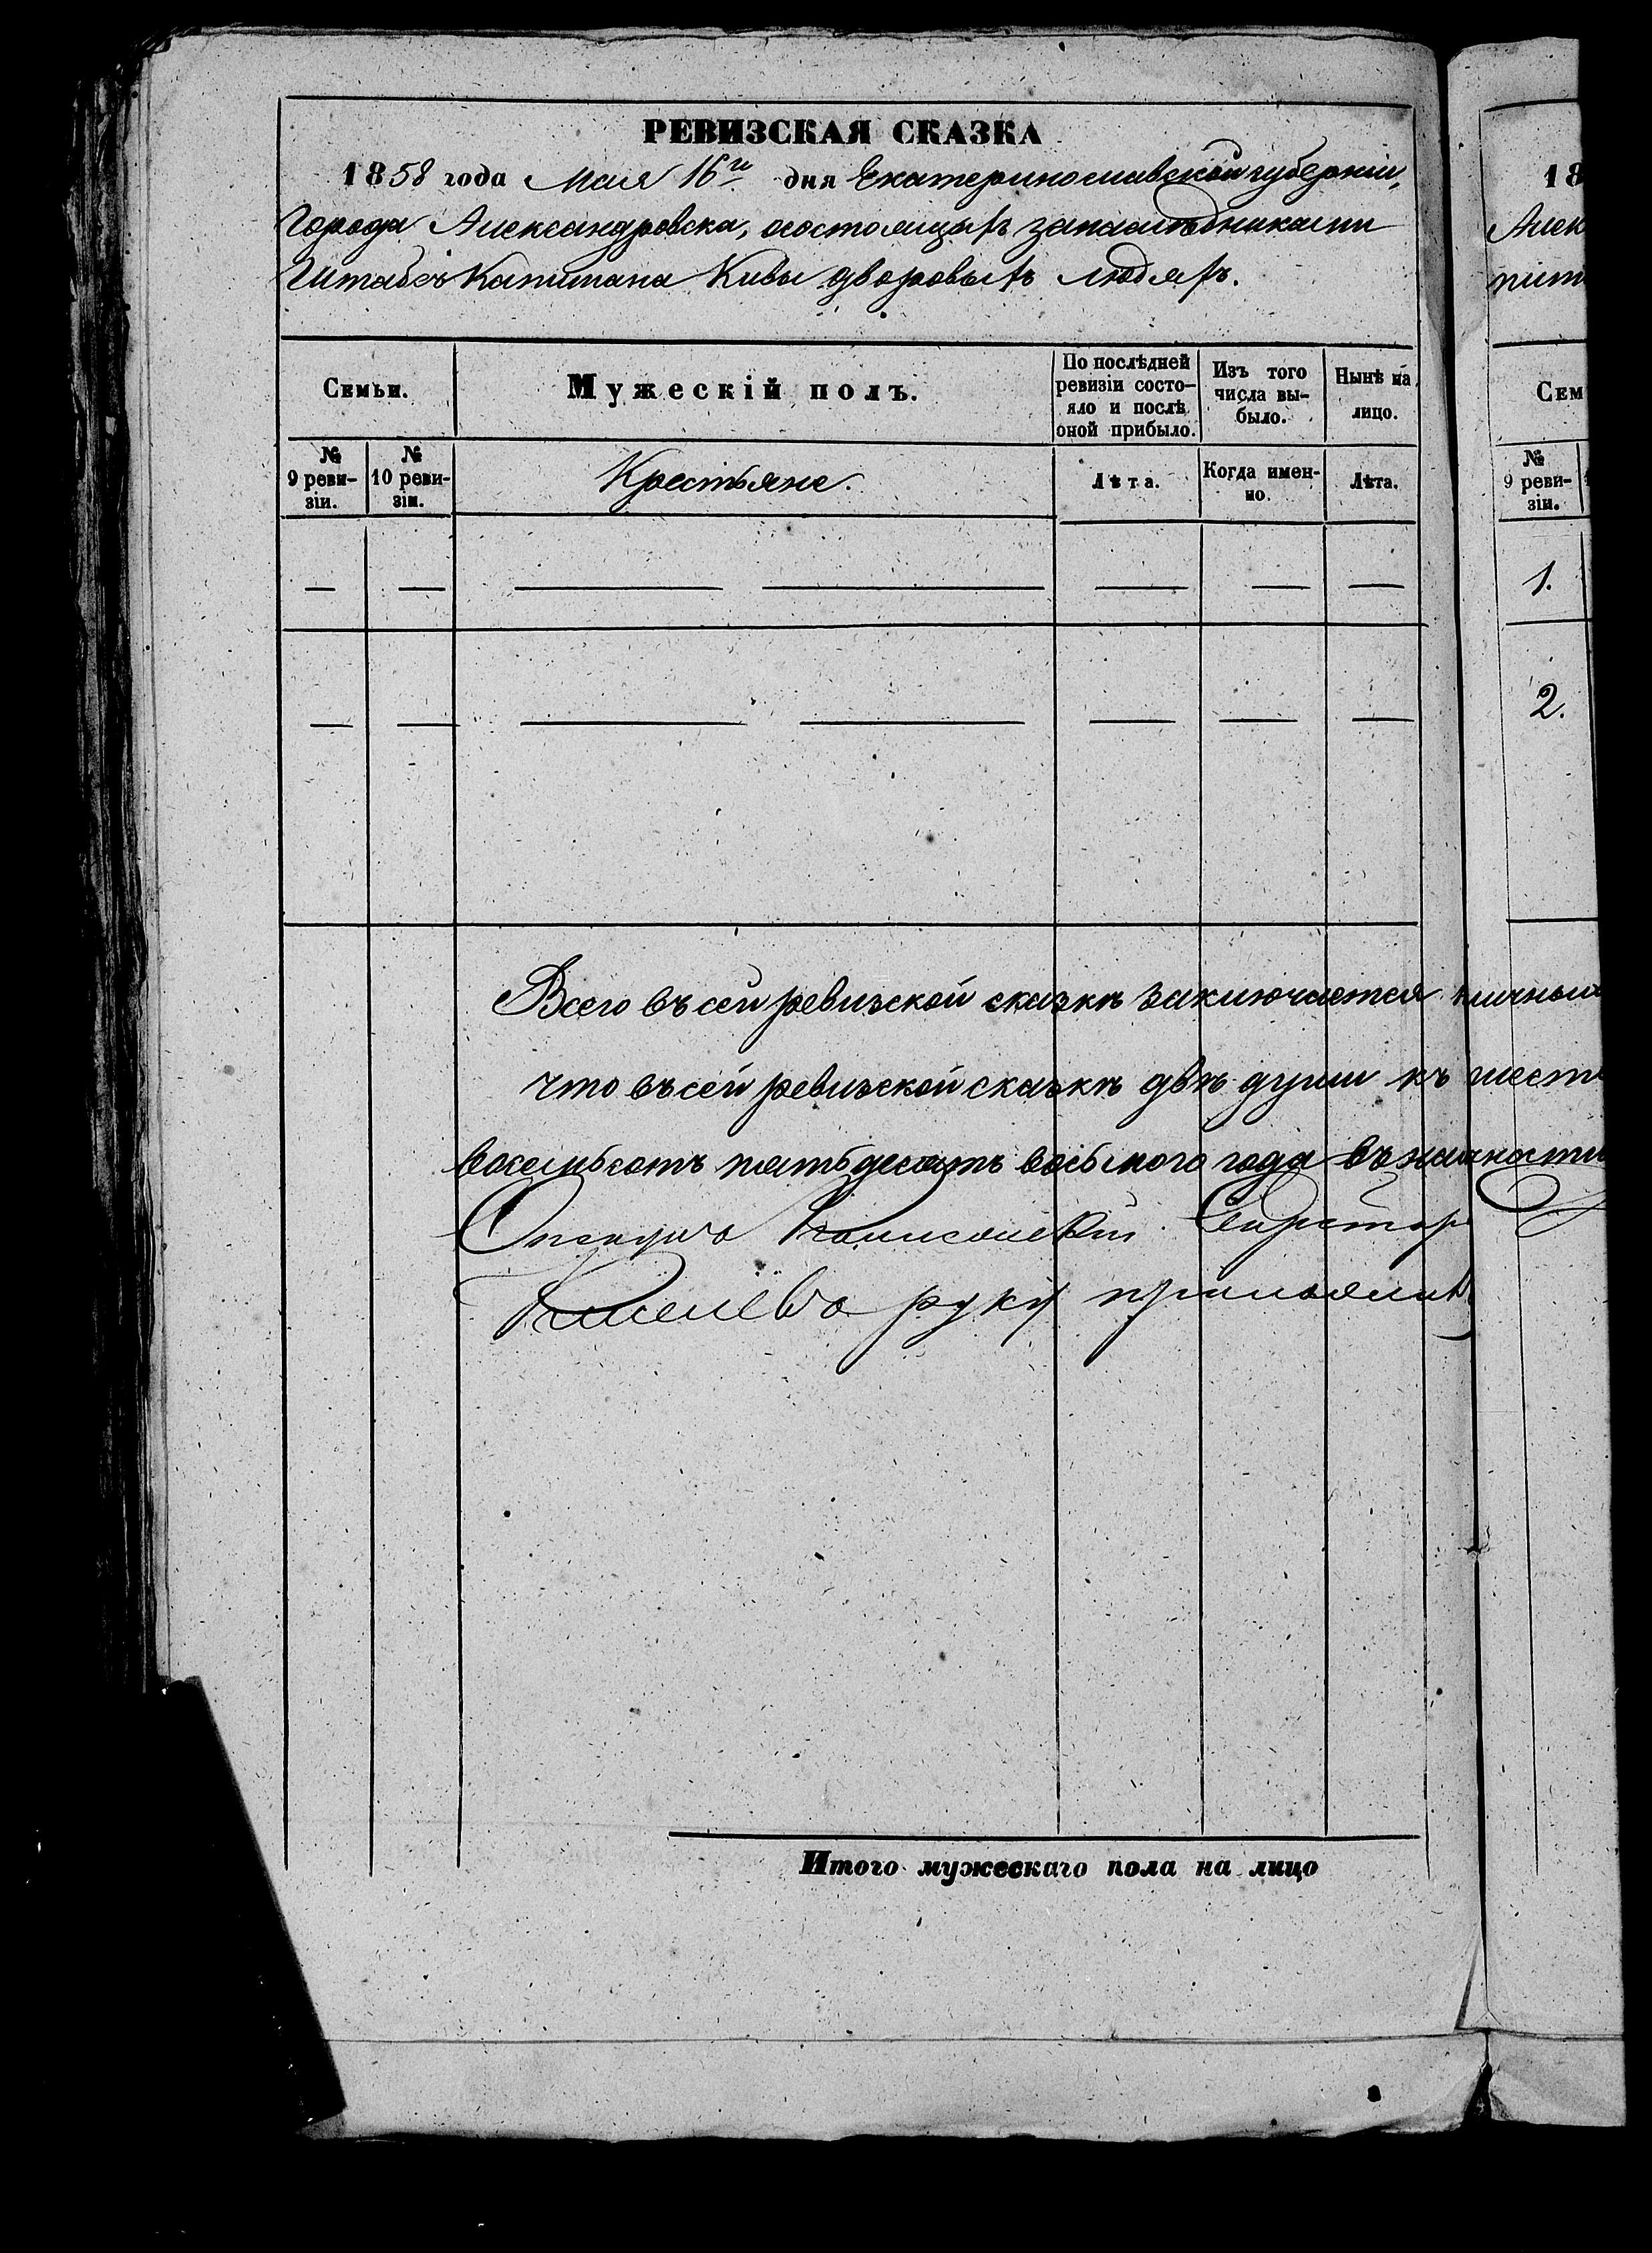 РЕВИЗСКАЯ СКАЗКА
1858 года Мая 16го дня Екатеринославской губерніи,
Города Александровска, осостоящихъ занаслѣдниками
Штабсъ Капитана Кивы дворовыхъ людяхъ.
Семьи.
Мужескій полъ.
По послѣдней ревизіи состо-
яло и послѣ
оной прибыло.
Изъ того
числа вы-
было.
Нынѣ на
лицо.
№ 9 реви-
зіи.
№ 10 реви-
зіи.
Крестьяне.
Лѣта.
Когда имен-
но.
Лѣта.
Всего въ сей ревизской сказкѣ заключается
что въ сей ревизской сказкѣ двѣ души къ
восемьсотъ пятьдесятъ восьмого года въ
руку
Итого мужескаго пола на лицо
18
Алек
пит
Сем
№
9 реви-
зіи.
1.
2.